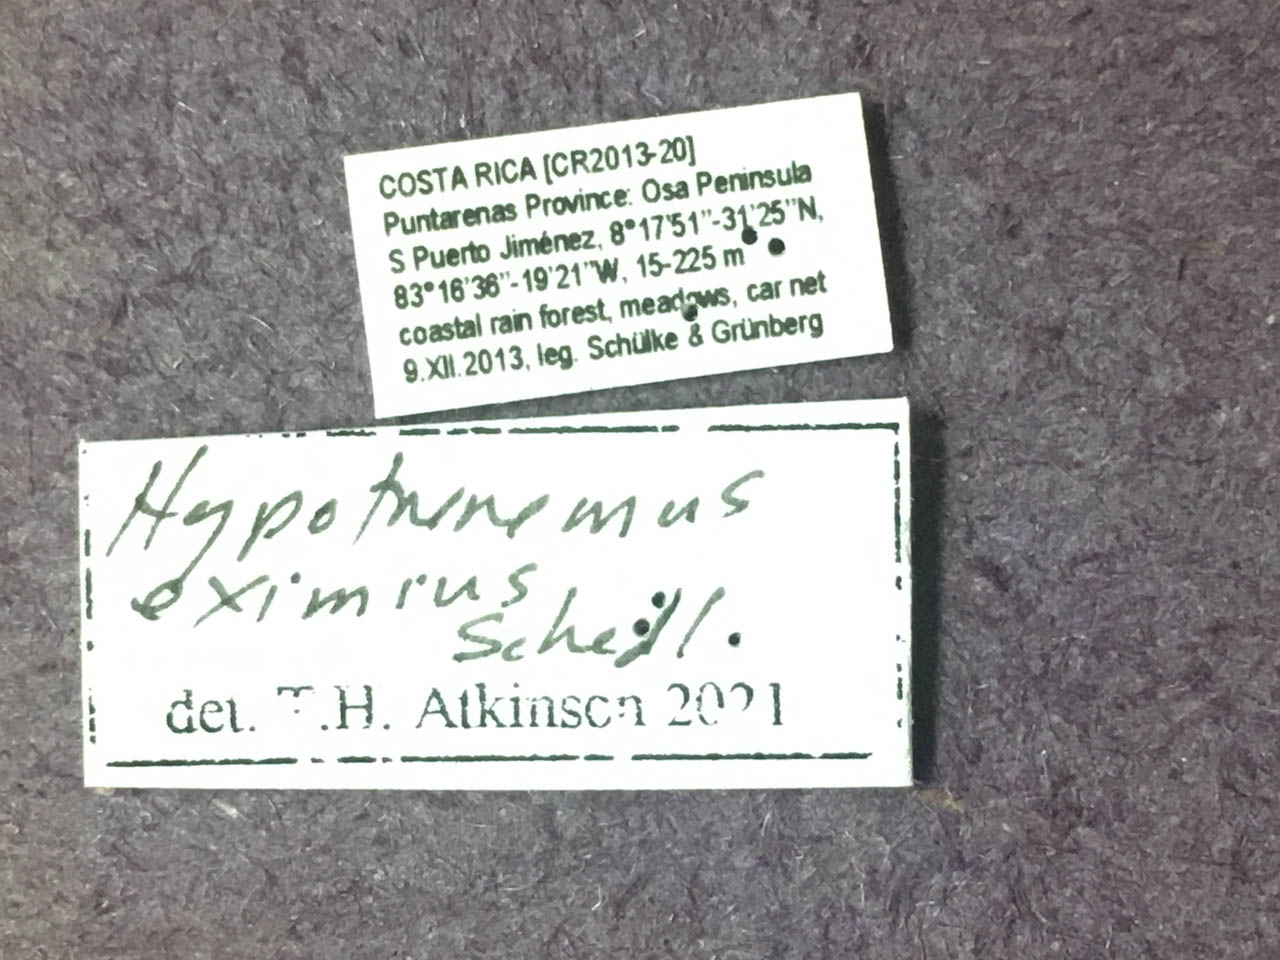 COSTA RICA [CR2013-20]
Puntarenas Province: Osa Peninsula
S Puerto Jiménez, 8°17'51''-31'25''N,
83°16'36''-19'21''W, 15-225 m
coastal rain forest, meadows, car net
9.XII.2013, leg. Schülke & Grünberg
Hypothenemus
eximius
Schedl.
det. T.H. Atkinson 2021